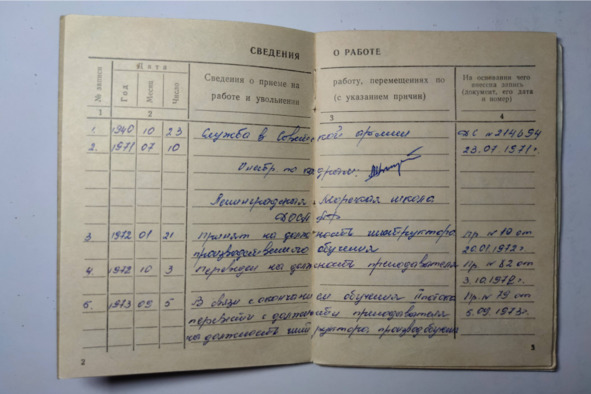 СВЕДЕНИЯ О РАБОТЕ
№ записи
Дата
Год
Месяц
Число
Сведения о приеме на работу, перемещениях по
работе и увольнении (с указанием причин)
На основании чего
внесена запись
(документ, его дата
и номер)
1 2 3 4
1. 1940 10 23 Служба в Советской армии ДС № 214694
2. 1971 07 10 23.07.1971г.
Инспр. по кадрам:
Ленинградская Морская школа
ДОСААФ
3. 1972 01 21 Принят на должность инструктора Пр. № 10 от
производственного обучения 20.01.1972г.
4. 1972 10 3 Переведен на должность преподавателя Пр. № 82 от
3.10.1972г.
5. 1973 09 5 В связи с окончанием обучения II потока Пр. № 79 от
перевести с должности преподавателя 5.09.1973г.
на должность инструктора производ обучения
2
3